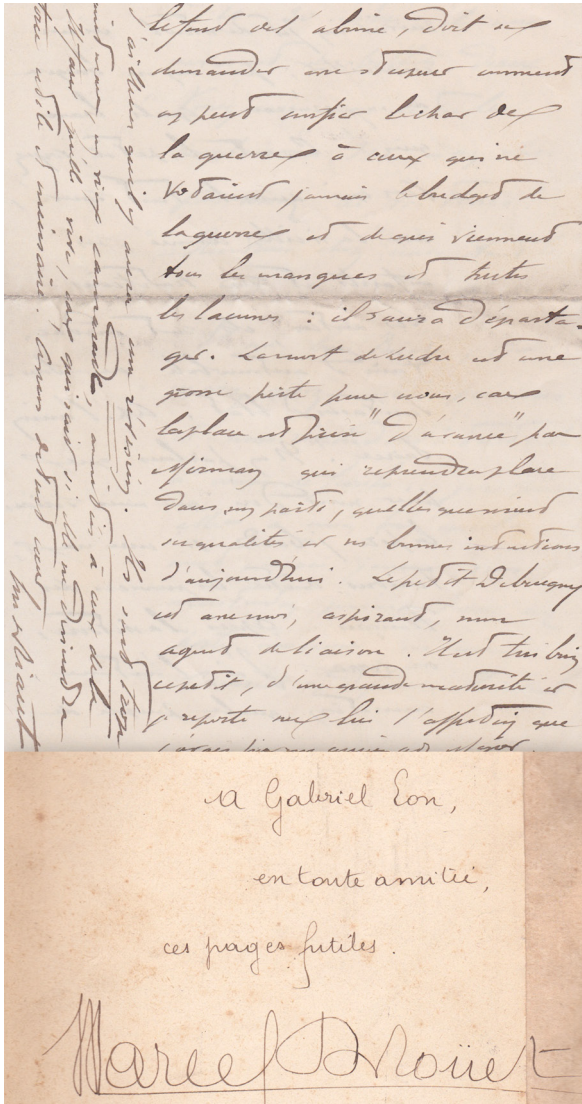 le fond de l'abîme, doit se
demander avec stupeur comment
on peut confier le char de
la guerre à ceux qui ne
votaient jamais le budget de
la guerre et de qui viennent
tous les manques et toutes
les lacunes : il s'aura départa-
ger. La mort de Ludre est une
grosse perte pour nous, car
la place est prise "d'avance" par
Mirman qui reprendra place
dans son parti, quelles que soient
ses qualités et ses bonnes intentions
d'aujourd'hui. Le petit
est avec moi, aspirant, mon
agent de liaison. Il est très bien
ce petit, d'une grande maturité et
je reporte sur lui l'affection que
j'avais
d'ailleurs qu'il y aura une révision. Ils sont tous
mon vieux camarade, à ceux de la
Il faut qu'elle vive, car qui sait si elle ne deviendra
pas utile et nécessaire.
A Gabriel Eon,
en toute amitié,
ces pages futiles.
Marcel Drouet